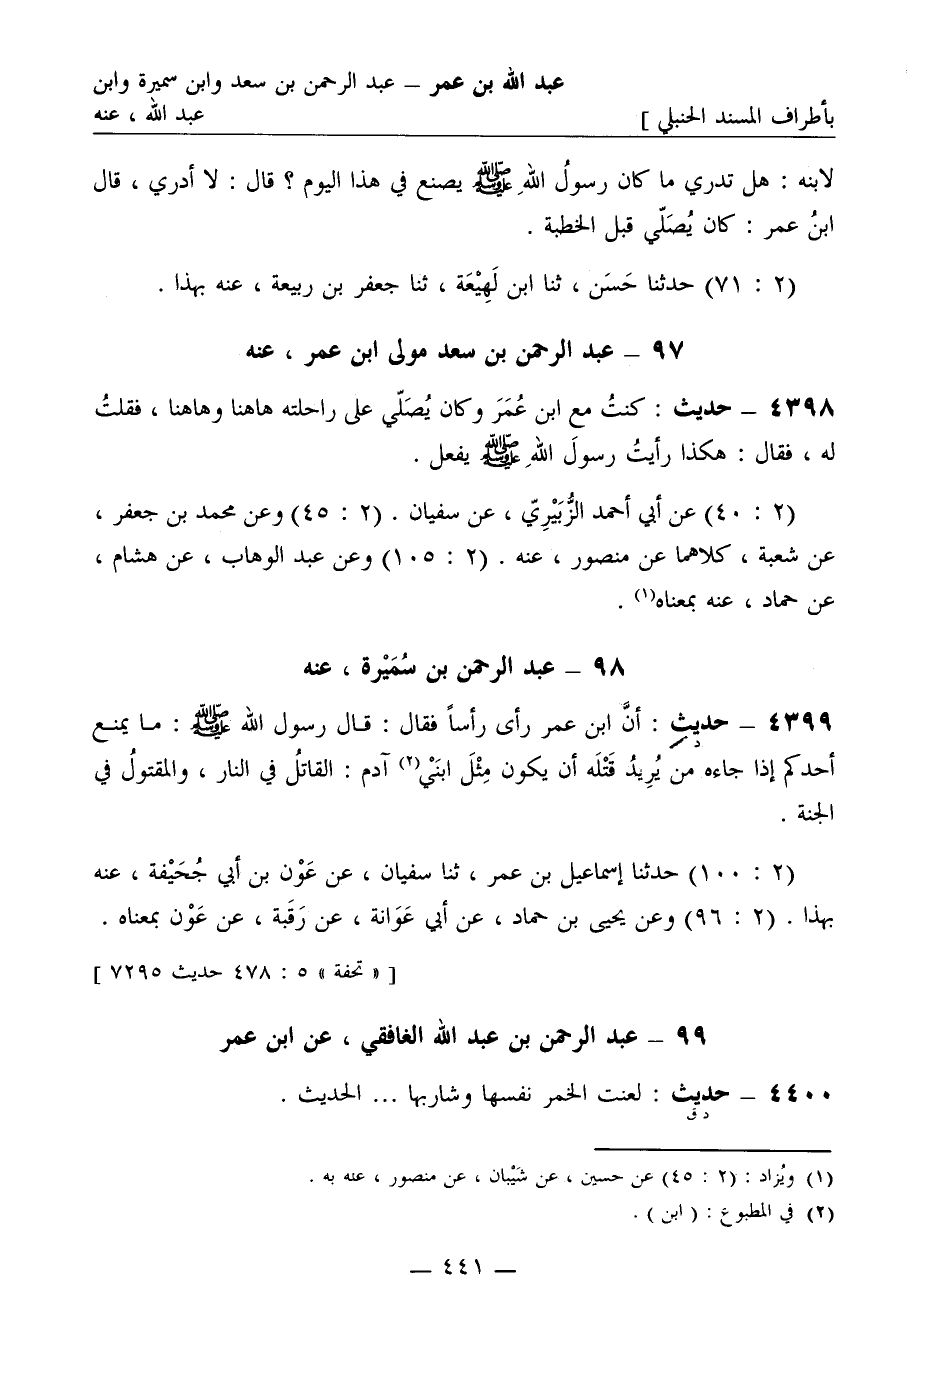 عبد الله بن عمر – عبد الرحمن بن سعد وابن سميرة وابن
بأطراف المسند الحنبلي ] عبد الله ، عنه
لابنه : هل تدري ما كان رسولُ اللهِ ﷺ يصنع في هذا اليوم ؟ قال : لا أدري ، قال
ابنُ عمر : كان يُصَلّي قبل الخطبة .
(٢ : ٧١) حدثنا حَسَن ، ثنا ابن لَهِيْعَة ، ثنا جعفر بن ربيعة ، عنه بهذا .
٩٧ – عبد الرحمن بن سعد مولى ابن عمر ، عنه
٤٣٩٨ – حديث : كنتُ مع ابن عُمَرَ وكان يُصَلّي على راحلته هاهنا وهاهنا ، فقلتُ
له ، فقال : هكذا رأيتُ رسولَ اللهِ ﷺ يفعل .
(٢ : ٤٠) عن أبي أحمد الزُّبَيْرِيّ ، عن سفيان . (٢ : ٤٥) وعن محمد بن جعفر ،
عن شعبة ، كلاهما عن منصور ، عنه . (٢ : ١٠٥) وعن عبد الوهاب ، عن هشام ،
عن حماد ، عنه بمعناه(١) .
٩٨ – عبد الرحمن بن سُمَيْرة ، عنه
٤٣٩٩ – حديث : أنَّ ابن عمر رأى رأساً فقال : قال رسول الله ﷺ : ما يمنع
د
أحدكم إذا جاءه من يُرِيدُ قَتْلَه أن يكون مِثْلَ ابنَيْ(٢) آدم : القاتلُ في النار ، والمقتولُ في
الجنة .
(٢ : ١٠٠) حدثنا إسماعيل بن عمر ، ثنا سفيان ، عن عَوْن بن أبي جُحَيْفة ، عنه
بهذا . (٢ : ٩٦) وعن يحيى بن حماد ، عن أبي عَوَانة ، عن رَقَبة ، عن عَوْن بمعناه .
[ « تحفة » ٥ : ٤٧٨ حديث ٧٢٩٥ ]
٩٩ – عبد الرحمن بن عبد الله الغافقي ، عن ابن عمر
٤٤٠٠ – حديث : لعنت الخمر نفسها وشاربها ... الحديث .
د ق
(١) ويُزاد : (٢ : ٤٥) عن حسين ، عن شَيْبان ، عن منصور ، عنه به .
(٢) في المطبوع : ( ابن ) .
– ٤٤١ –